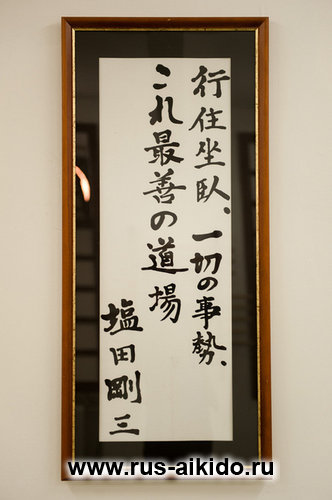 行住坐臥、一切の事勢、
これ最善の道場
塩田剛三
www.rus-aikido.ru